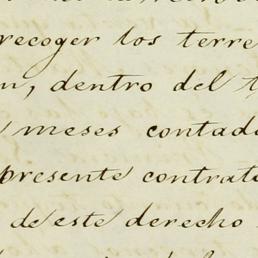 recoger los terre
n, dentro del t
meses contado
presente contrato
de este derecho